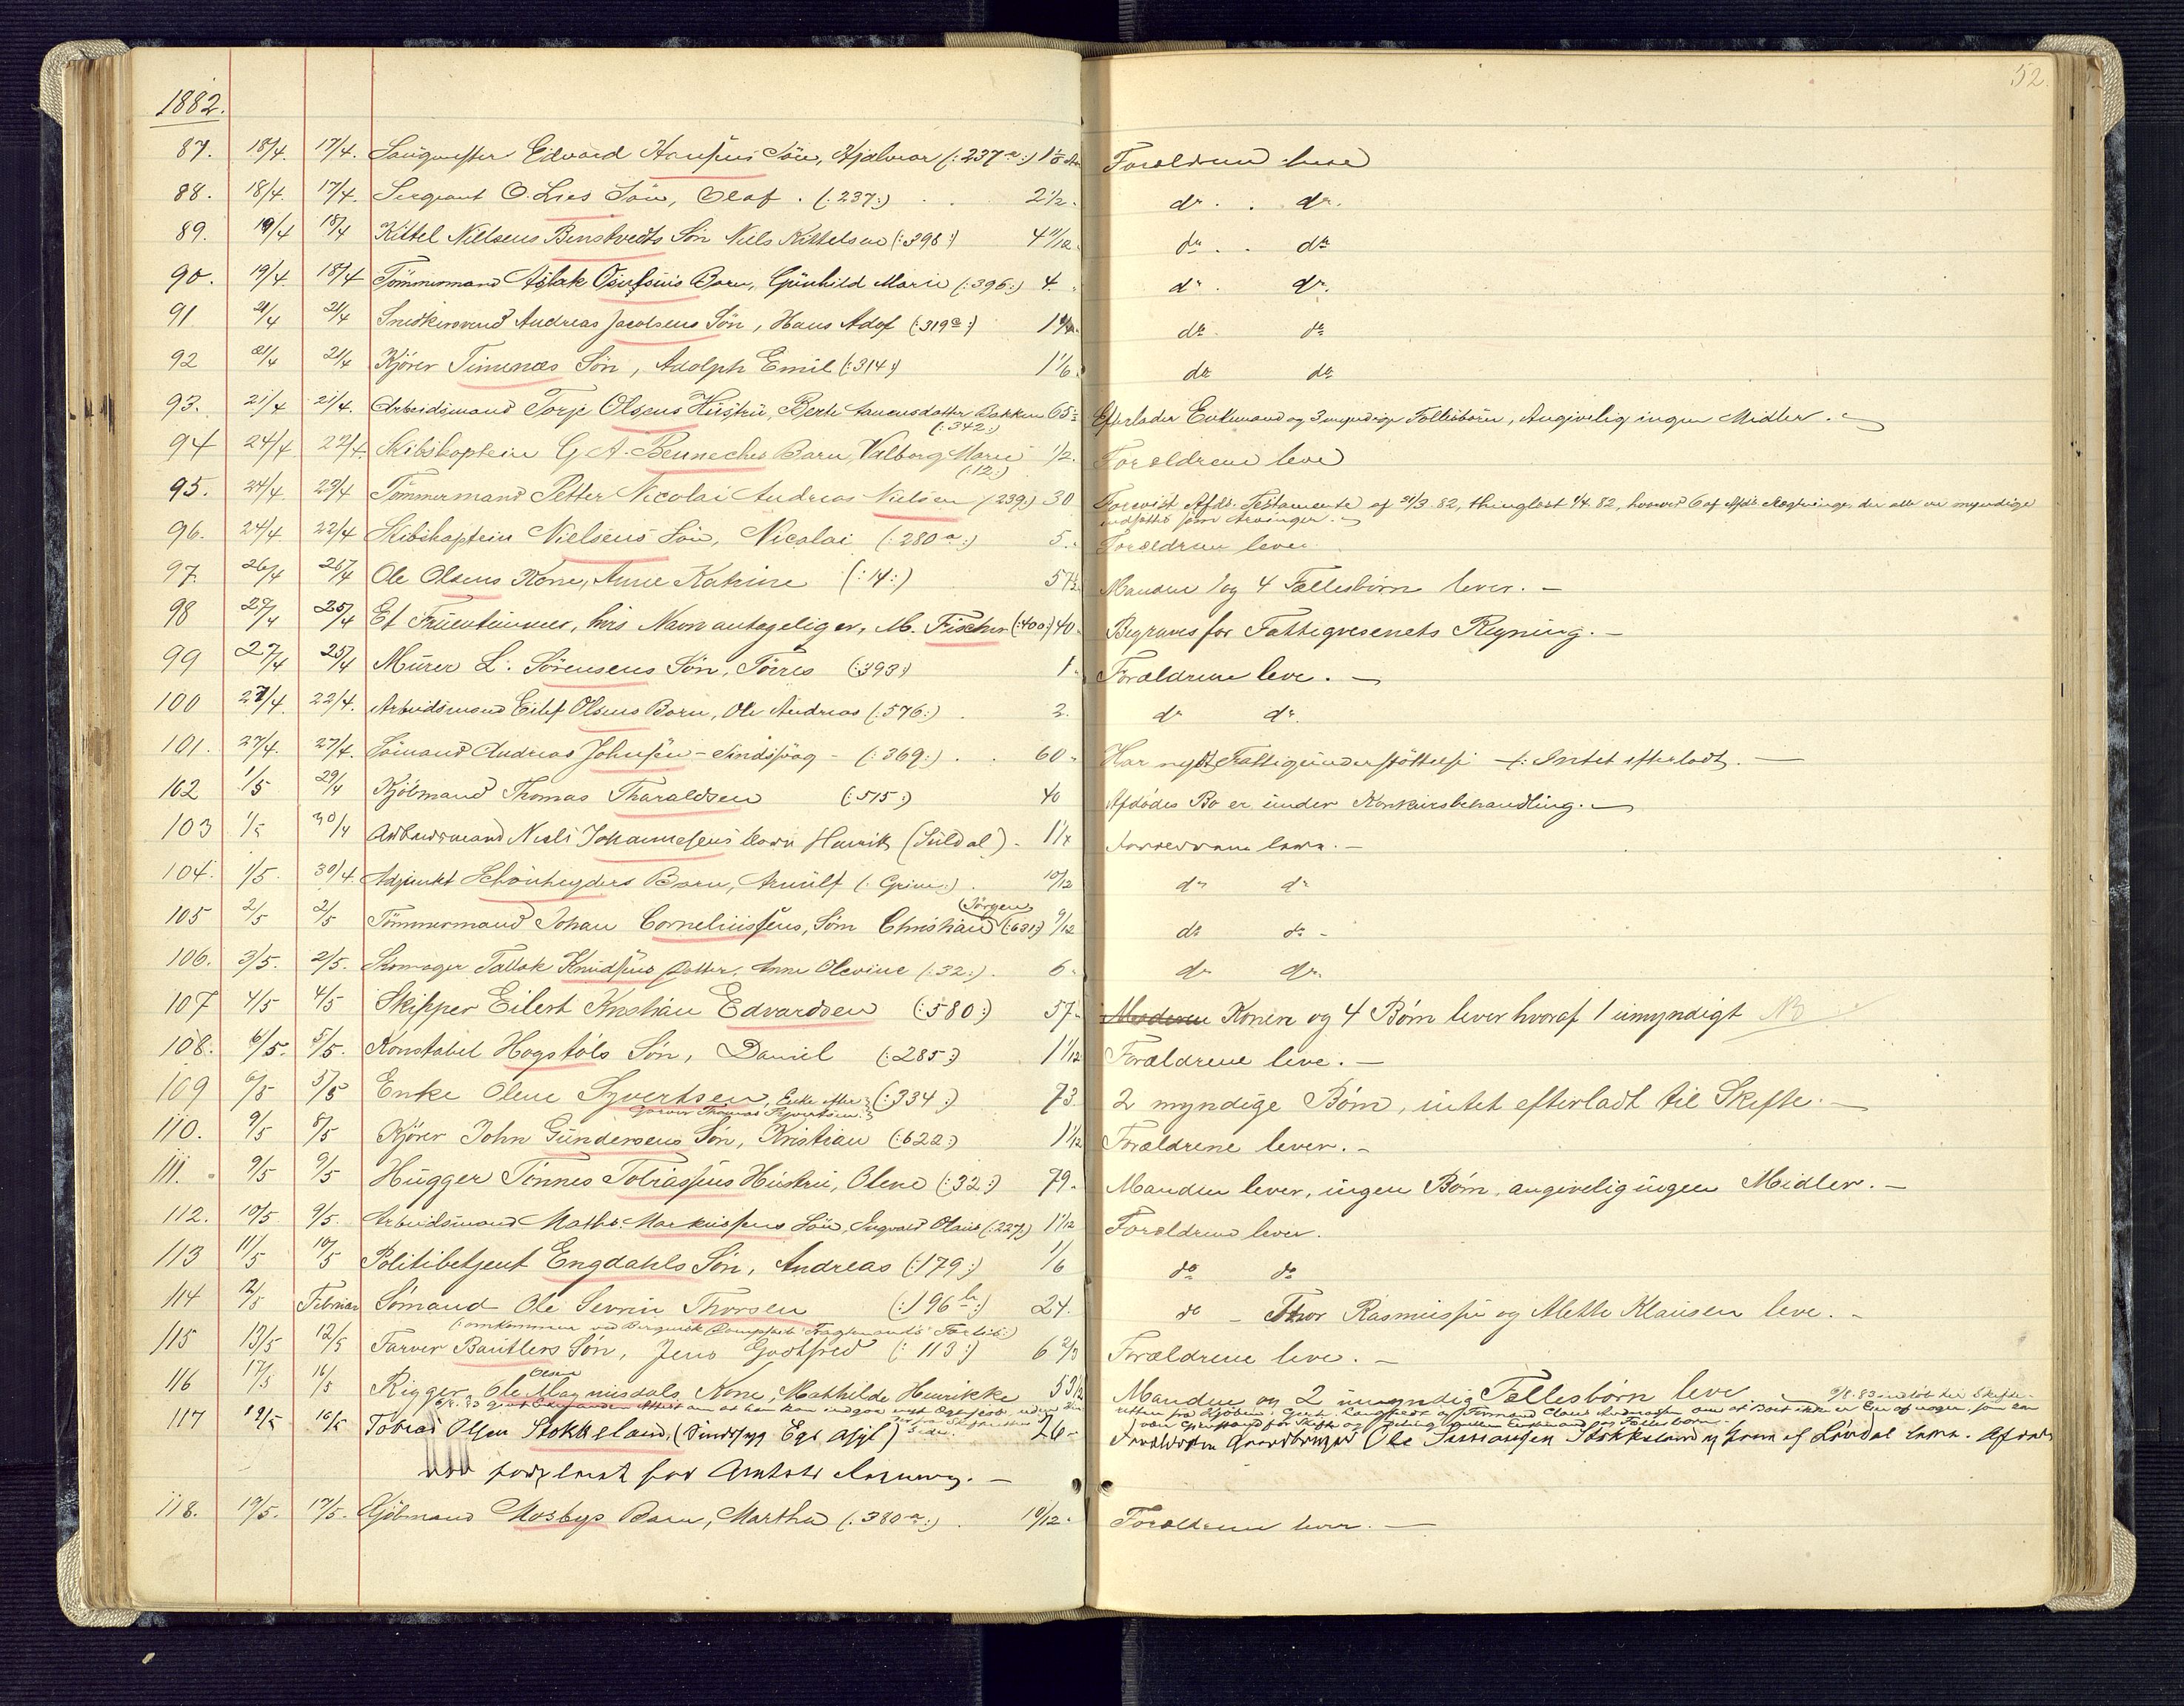 52.
1882.
87. 18/4. 17/4. Laugmester Edvard Hansens Søn, Hjalmar (:237a:) 1 1/8 Forældrene leve
88. 18/4. 17/4. Sergeant O. Lies Søn, Olaf. (:237:) 2 1/2. do. do.
89. 19/4 18/4 Kittel Nielsens Benstvedts Søn Niels Kittelsen (:396:) 4 11/12. do. do
90. 19/4. 18/4 Tömmermand Aslak Osufsens Barn, Gunhild Marie (:396:) 4. do. do.
91 21/4 21/4 Snedkersvend Andreas Jacobsens Søn, Hans Adof (:319c:) do. do
92 21/4 21/4 Kjører Timenæs Søn, Adolph Emil (:314:) 1 1/6. do do
93. 21/4 21/4. Arbeidsmand Torje Olsens Hustru, Berte Aanensdatter Bakken 65 Efterlader Enkemand og 3 myndige Fællesbörn, Angivelig ingen Midler. –
(:342:)
94 24/4 22/4. Skibskaptein G. A. Benneches Barn, Valborg Marie 1/2. Forældrene leve
(:12:)
95. 24/4. 23/4 Tömmermand Petter Nicolai Andreas Nielsen (239:) 30 Forevist Afdö. Testamente af 21/3 82, thinglæst 1/4 82, hvorved 6 af Afdö. Slægtninge, der alle ere myndige
indsatte som Arvinger. –
96. 24/4 22/4 Skibskaptein Nielsens Søn, Nicolai (:280a:) 5. Forældrene lever
97. 26/4 26/4 Ole Olsens Kone, Anne Katrine (:14:) 57 1/2 Manden og 4 Fællesbörn lever. –
98 27/4 25/4 Et Fruentimmer, hvis Navn antagelig er, M. Fischer (:400:) 40. Begraves for Fattigvesenets Regning. –
99 27/4 25/4 Murer L. Sørensens Søn, Törres (:393:) 1. Forældrene leve. –
100 27/4. 22/4. Arbeidsmand Eilef Olsens Barn, Ole Andreas (:576:) 2. do do.
101. 27/4. 27/4. Sömand Andreas Johnsen – Sindssvag – (:369:) 60. Har nydt Fattigunderstøttelse –/: Intet efterladt. –
102 1/5 29/4 Kjöbmand Thomas Tharaldsen (:515:) 40 Afdödes Bo er under Konkursbehandling. –
103 1/5 30/4 Arbeidsmand Niels Johannesens barn Henrik (Suldal). 1 1/4 Forældrene leve. –
104. 1/5. 30/4. Adjunkt Schönheyders Barn, Arnulf (:Grim:). 10/12 do do
(Jörgen)
105 2/5 2/5 Tömmermand Johan Corneliussens, Søn Christian (:631:) 9/12 do do –
106. 3/5. 2/5. Skomager Tallak Knudsens Datter, Anne Olevine (:32:). 6. do do.
107 4/5 4/5 Skipper Eilert Kristian Edvardsen (:580:) 57. Moderen Konen og 4 Børn lever hvoraf 1 umyndigt NB
108. 6/5. 5/5. Konstabel Hogstöls Søn, Daniel (:285:) 1 1/12 Forældrene leve. –
109 6/5 5/5 Enke Olene Syvertsen, Enke efter (:334:) 73 2 myndige Börn, intet efterladt til Skifte. –
Garver Thomas Syvertsen.
110. 9/5 8/5 Kjører John Gundersens Søn, Kristian (:622:) 1 1/12 Forældrene lever. –
111. 9/5 9/5 Hugger Tönnes Tobiassens Hustru, Olene (:32:) 79. Manden lever, ingen Börn, angivelig ingen Midler. –
112. 10/5 9/5. Arbeidsmand Maths. Markussens Søn, Ingvald Olaus (:227:) 1 1/12 Forældrene lever.
113 11/5 10/5 Politibetjent Engdahls Søn, Andreas (:179:) 1/6 do do
114 12/5 Februar Sömand Ole Severin Thorsen (:196b:) 24. do – Thor Rasmussen og Mette Klausen leve. –
(:omkommen ved Bergensk Dampskib Fragtmand's Forlis:)
115 13/5 12/5 Farver Bautlers Søn, Jens Godtfred (:113:) 6 2/3 Forældrene leve. –
116 17/5 16/5 Rigger Ole Olsen Magnusdals Kone, Mathilde Henrikke 53 1/2 Manden og 2 umyndig Fællesbörn leve. –
117 19/5 16/5 Tobias Olsen Stokkeland, (Sindssyg Egs Asyl) 26 Forældrene Gaardbruger Ole Stokkeland og Kone af Søndal leve. Afdøde
var forpleiet for Amtets Regning. –
118. 19/5. 17/5. Kjöbmand Mosbys Barn, Martha (:380a:). 10/12. Forældrene lever. –